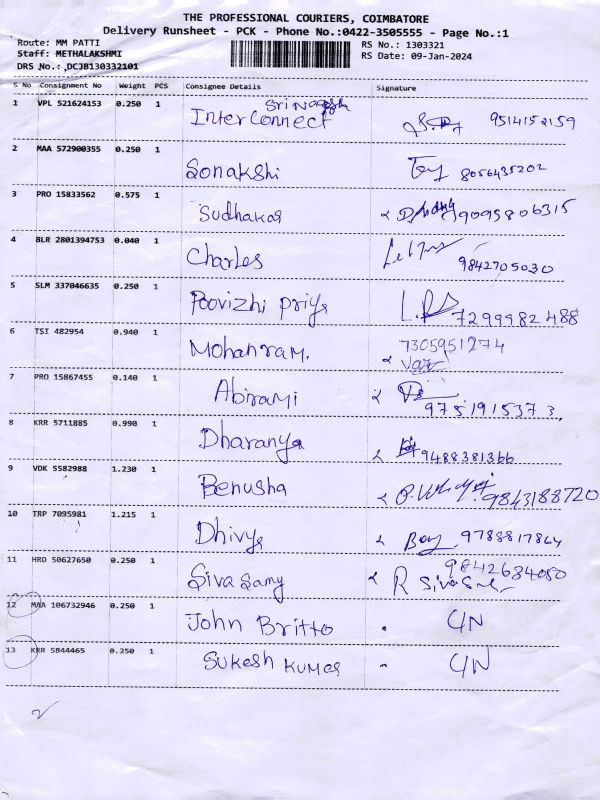 THE PROFESSIONAL COURIERS, COIMBATORE
Delivery Runsheet - PCK - Phone No.:0422-3505555 - Page No.:1
Route: MM PATTI
RS No.: 1303321
Staff: METHALAKSHMI
RS Date: 09-Jan-2024
DRS No.: DCJB130332101
S No Consignment No Weight PCS Consignee Details Signature
1 VPL 521624153 0.250 1 Interconnect 9514152159
2 MAA 572900355 0.250 1 Sonakshi 8056435202
3 PRO 15833562 0.575 1 Sudhakar 9095806315
4 BLR 2801394753 0.040 1 Charles 9842705030
5 SLM 337046635 0.250 1 Poovizhi priya 7299982488
6 TSI 482954 0.940 1 Mohanram. 7305951274
7 PRO 15867455 0.140 1 Abirami 9751915373.
8 KRR 5711885 0.990 1 Dharanya 9488381366
9 VDK 5582988 1.230 1 Benusha 9843188720
10 TRP 7095981 1.215 1 Dhivya 9788817864
11 HRD 50627650 0.250 1 Sivasamy 9842684080
12 MAA 106732946 0.250 1 John Britto C/N
13 KRR 5844465 0.250 1 Sukesh Kumar C/N